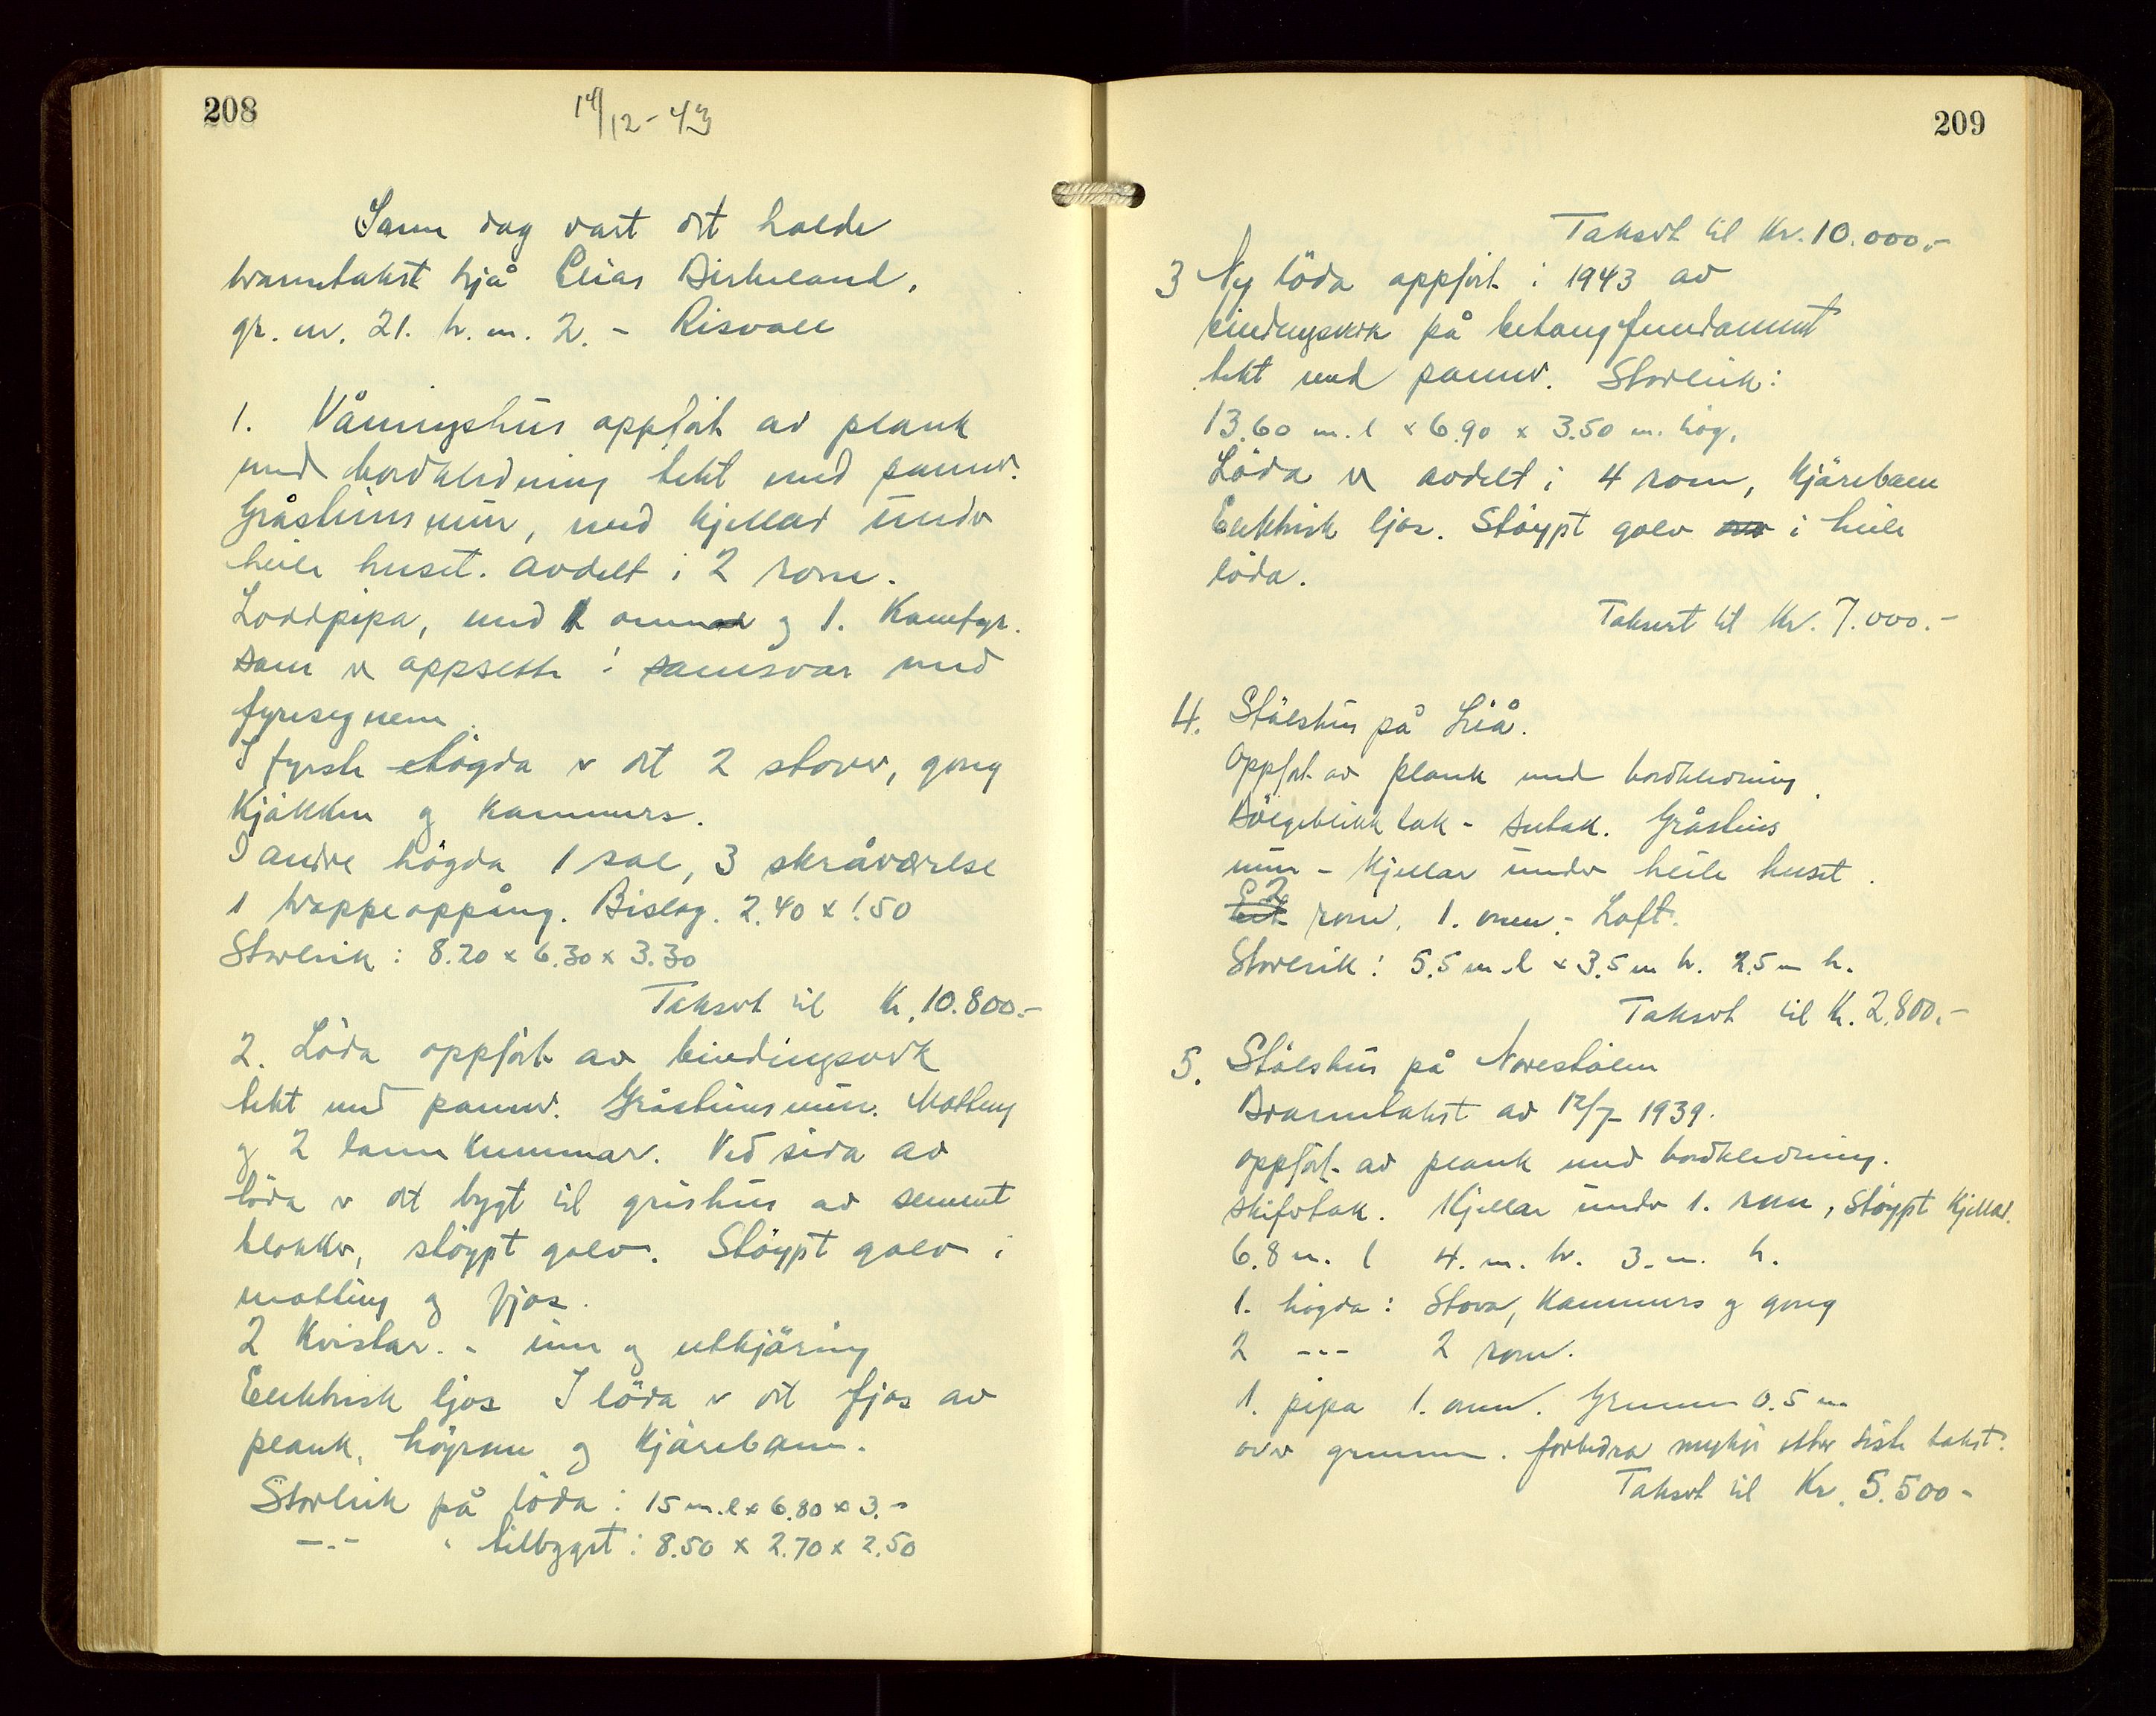 208
14/12-43
Same dag vart det halde
branntakst hjå Elias Birkeland,
gr. nr. 21. br. nr. 2. - Risvoll
1. Våningshus oppført av plank
med bordkledning tekt med panner.
Gråsteinsmur, med kjellar under
heile huset. avdelt i 2 rom.
Loddpipa, med 1 omn og 1. Komfyr.
som er oppsette i samsvar med
fyresegnene.
I fyrste høgda er det 2 stover, gong
Kjøkken og kammers.
I andre høgda 1 sal, 3 skråværelse
1 trappeoppgang. Bislag. 2.40 x 1.50
Storleik: 8.20 x 6.30 x 3.30
Taksert til Kr. 10.800.-
2. Löda oppført av bindingsverk
tekt med panner. Gråsteinsmur. Møtting
og 2 land kummar. Ved sida av
löda er det bygt til grishus av sement
blokker, støypt golv. Støypt golv i
møtting og fjos.
2 Kvistar. - inn og utkjöring
Elektrisk ljos I löda er det fjos av
plank, høyrom og kjørebane.
Storleik på löda: 15 m.l x 6.80 x 3.-
-.- " tilbygget: 8.50 x 2.70 x 2.50
209
Taksert til Kr. 10.000.-
3 Ny löda oppført i 1943 av
bindingsverk på betongfundament
tekt med panner. Storleik:
13.60 m. l x 6.90 x 3.50 m. høg.
Löda er avdelt i 4 rom, kjörebane
Elektrisk ljos. Støypt golv i heile
löda.
Taksert til Kr. 7.000.-
4. Stølshus på Liå.
Oppført av plank med bordkledning.
Bölgeblikk tak - sutak. Gråsteins
mur - Kjellar under heile huset.
2 rom. 1. omn. - Loft.
Storleik: 5.5 m. l x 3.5 m br. 2.5 m h.
Taksert til Kr. 2.800.-
5. Stølshus på Norestølen
Branntakst av 12/7 1939.
oppført av plank med bordkledning.
skifertak. Kjellar under 1. rom, støypt kjellar.
6.8 m. l 4. m. br. 3. m. h.
1. høgda: Stova, Kammers og gong
2 --- 2 rom.
1. pipa 1. omn. Grunnm 0.5 m
over grunnen. forbedra mykje etter siste takst.
Taksert til Kr. 5.500-